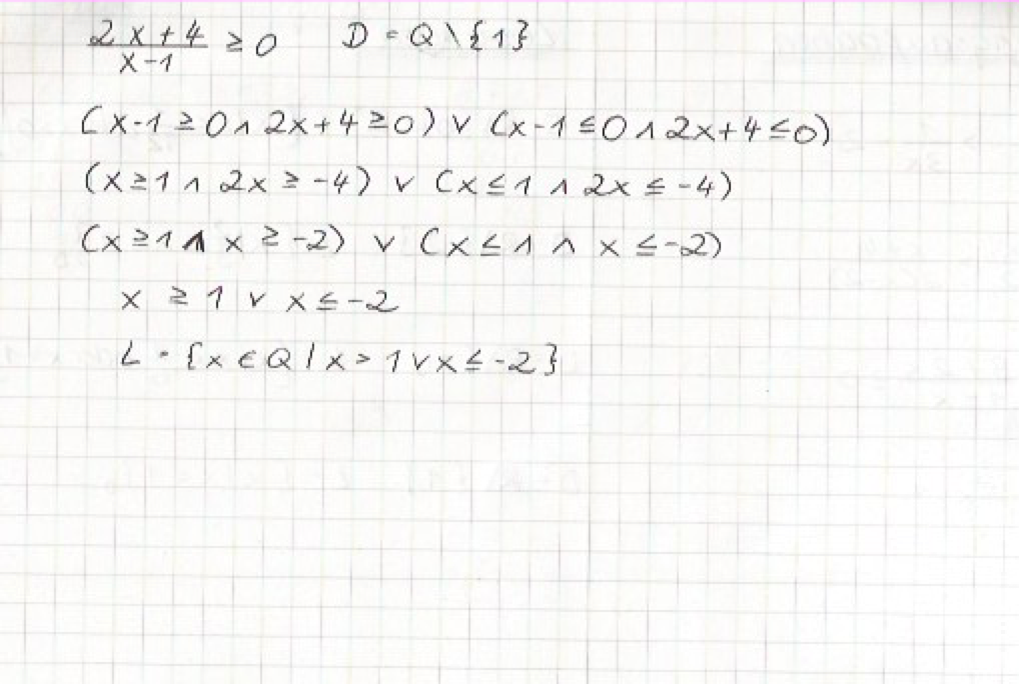 (2x+4)/(x-1) ≥ 0   D = Q\{1}
(x-1 ≥ 0 ∧ 2x+4 ≥ 0) ∨ (x-1 ≤ 0 ∧ 2x+4 ≤ 0)
(x ≥ 1 ∧ 2x ≥ -4) ∨ (x ≤ 1 ∧ 2x ≤ -4)
(x ≥ 1 ∧ x ≥ -2) ∨ (x ≤ 1 ∧ x ≤ -2)
x ≥ 1 ∨ x ≤ -2
L = {x ∈ Q | x > 1 ∨ x ≤ -2}